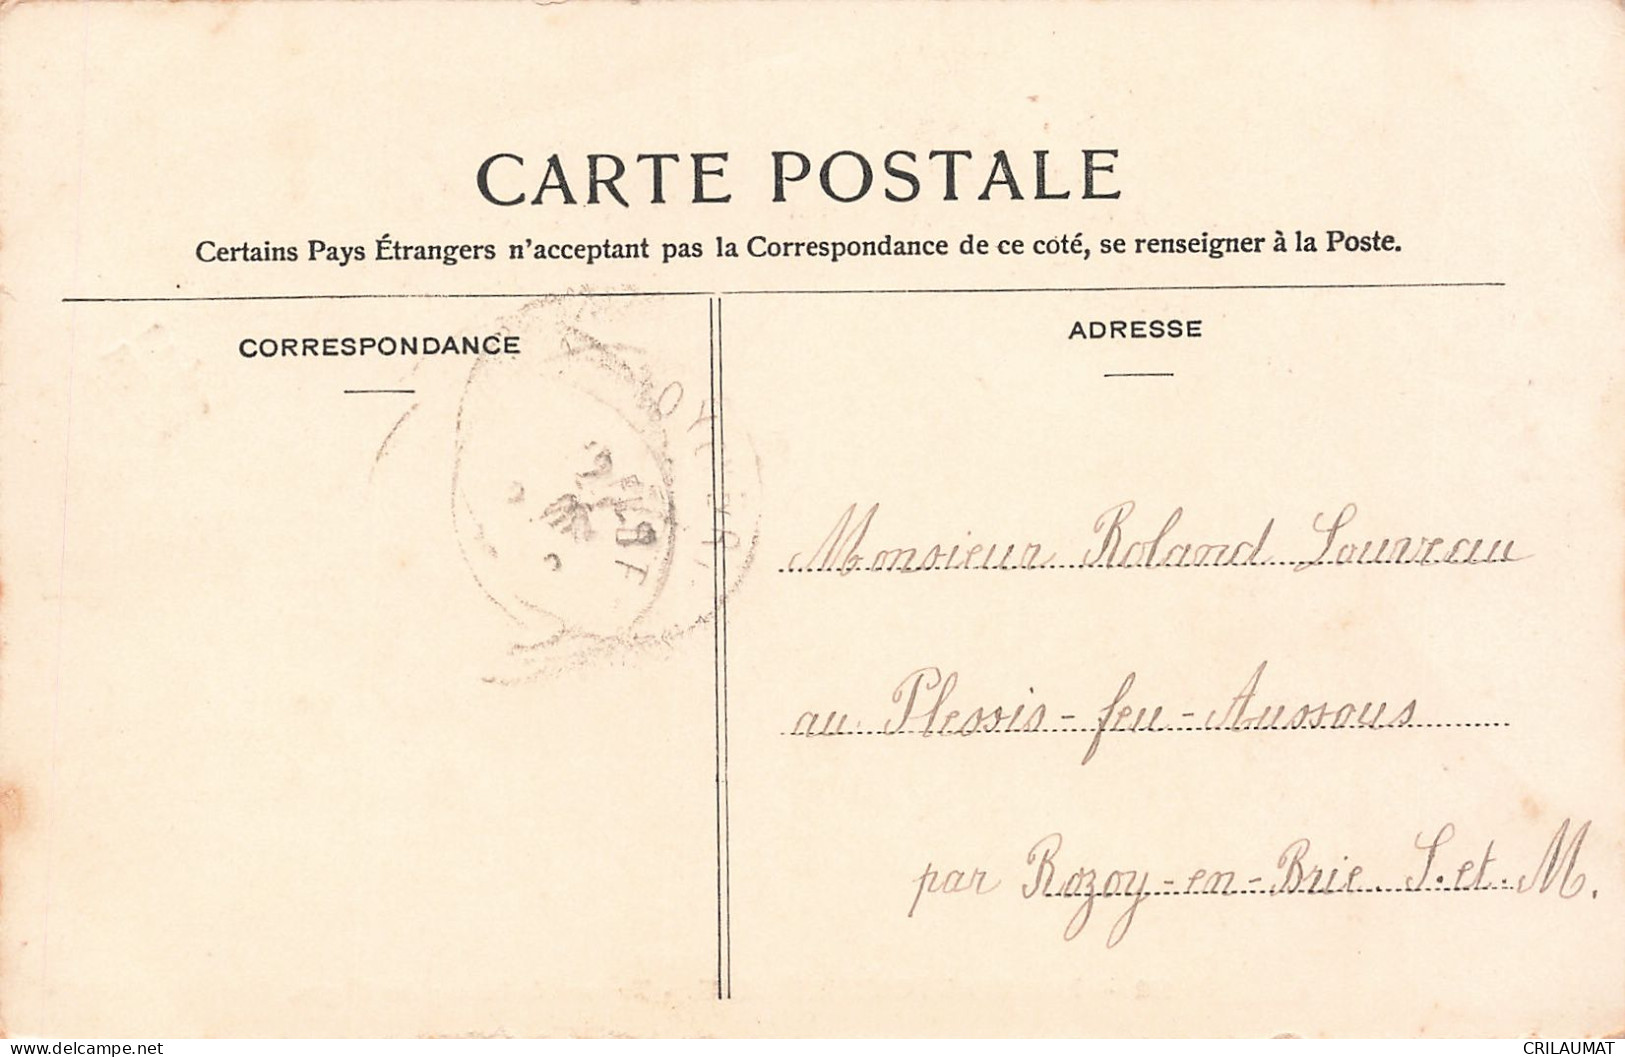 CARTE POSTALE
Certains Pays Étrangers n'acceptant pas la Correspondance de ce côté, se renseigner à la Poste.
CORRESPONDANCE
ADRESSE
Monsieur Roland Louveau
au Plessis-feu-Aussous
par Rozoy-en-Brie S.et.M.
delcampe.net
CRILAUMAT